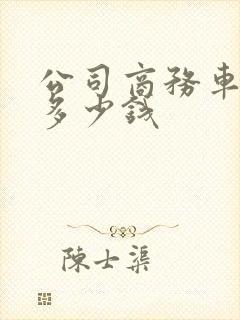 公司商务車
多少钱
陳士渠